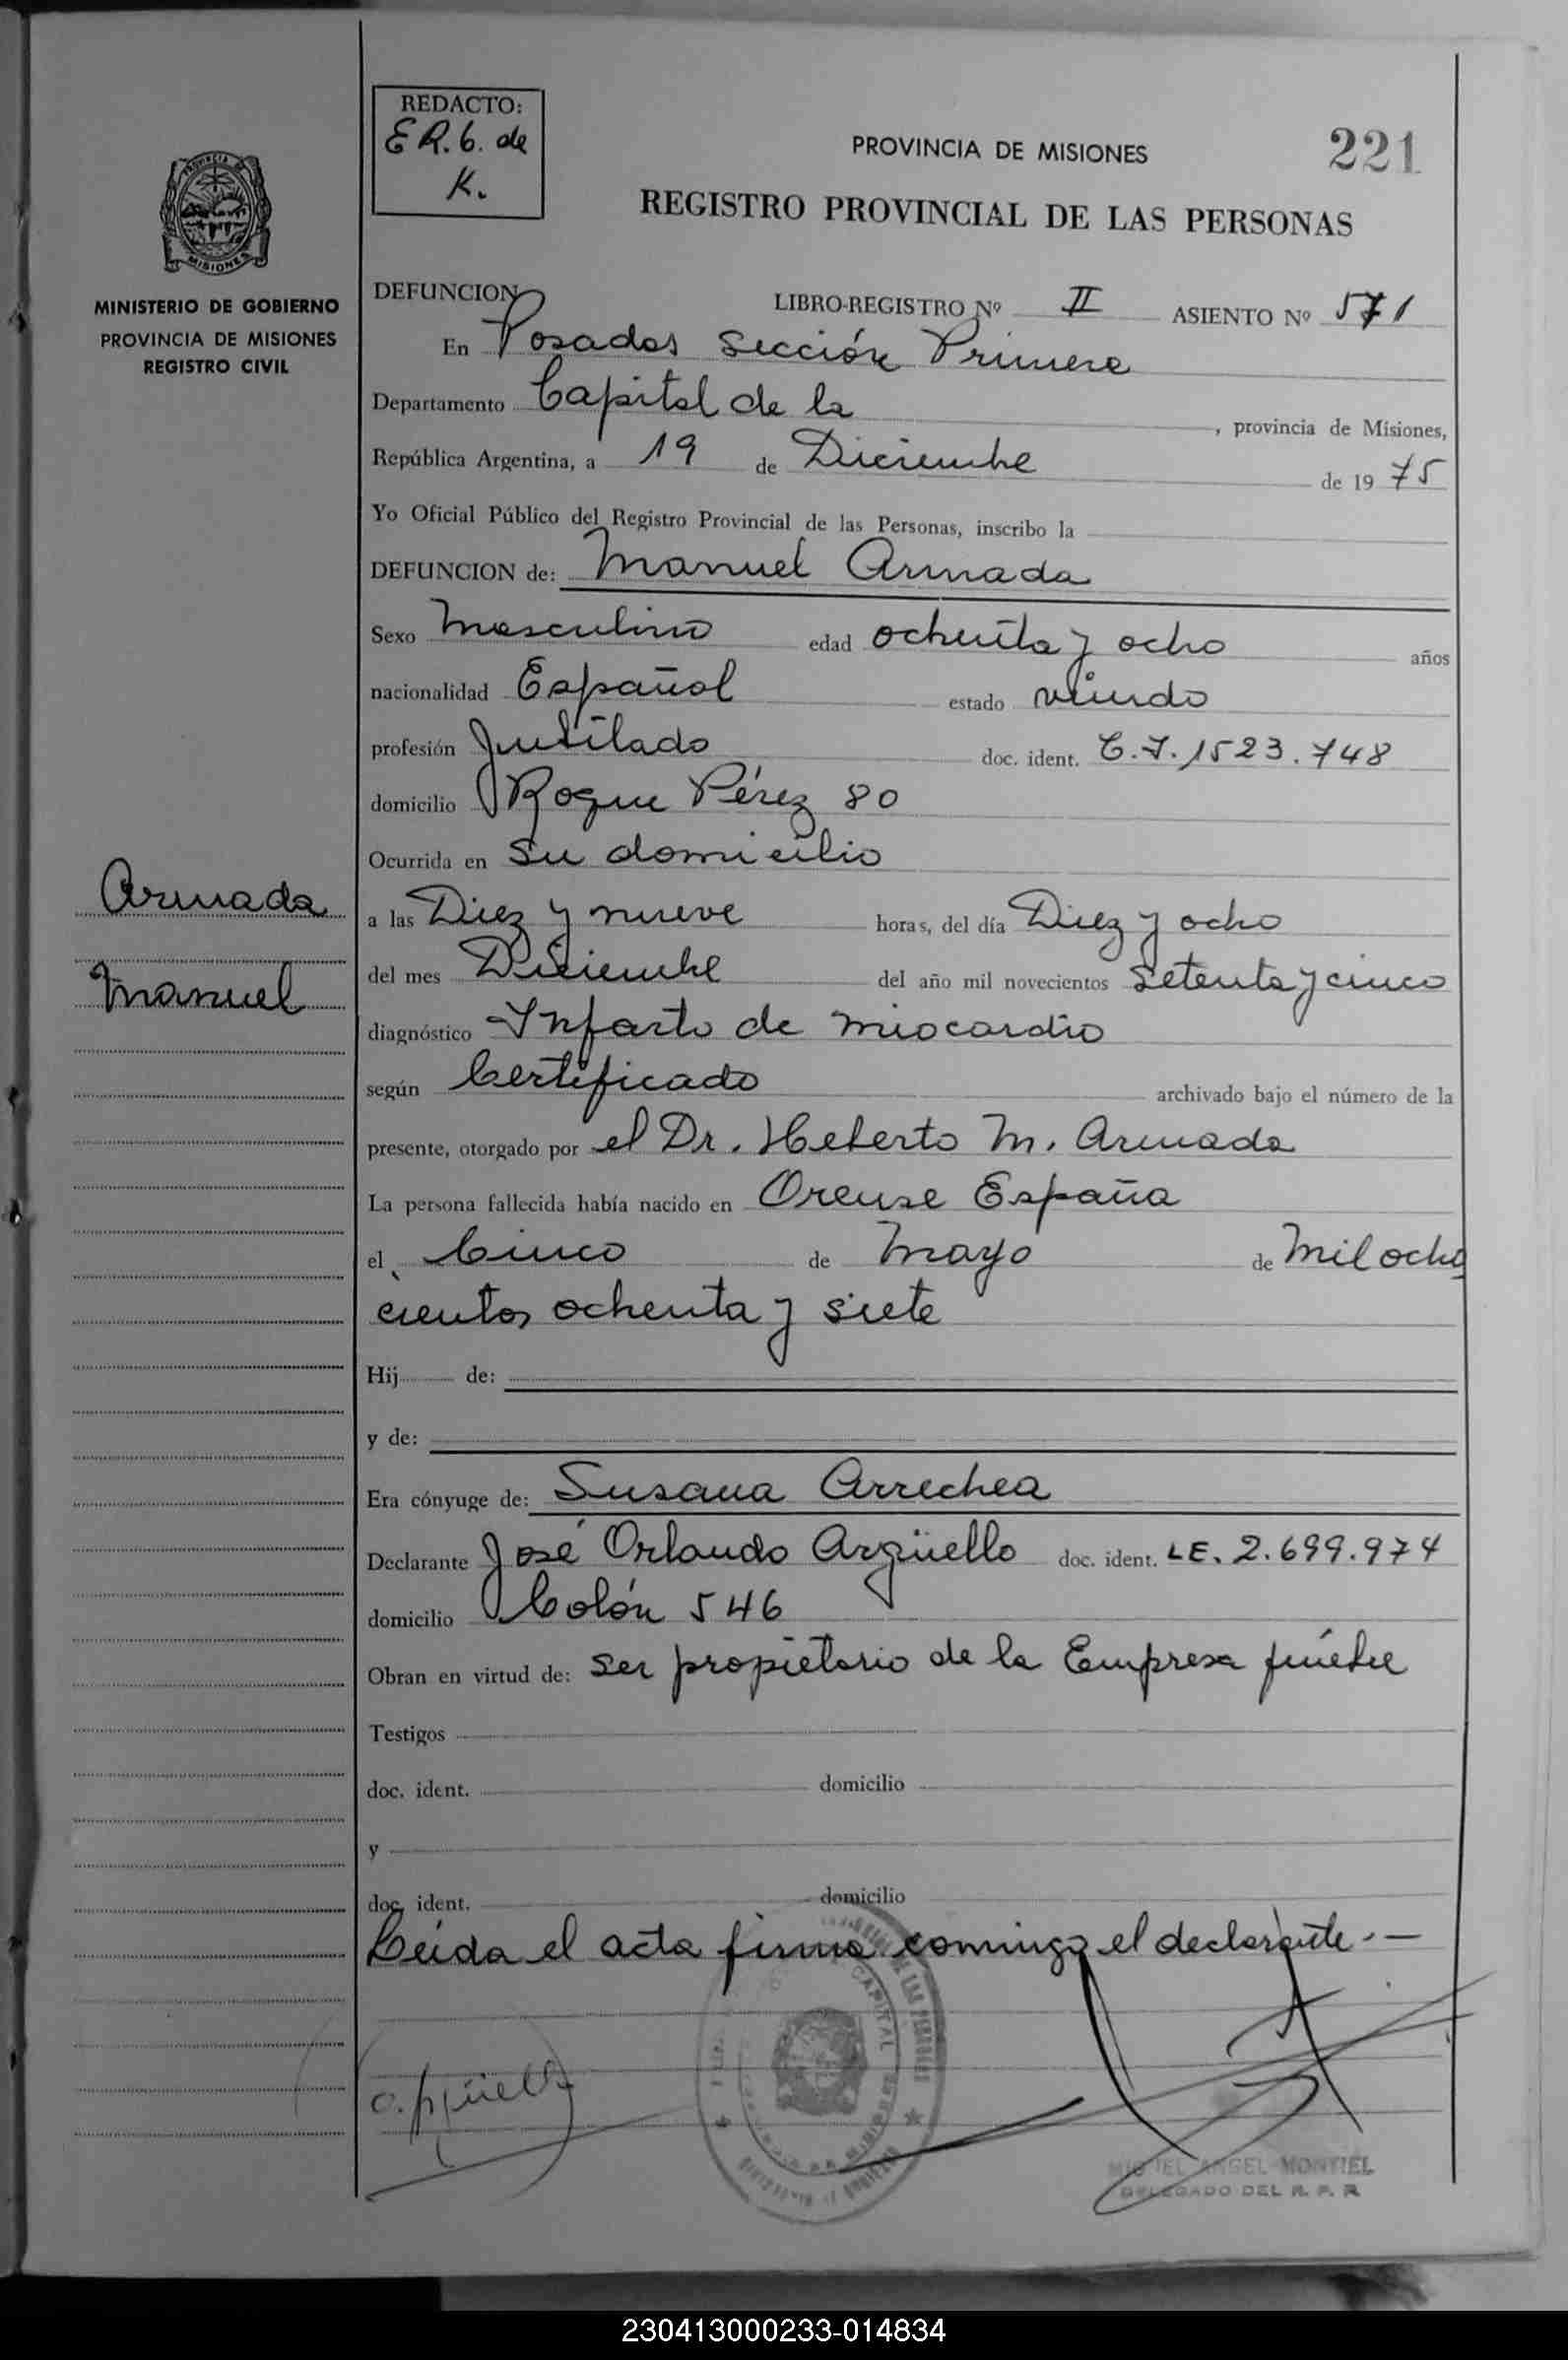 REDACTO:
E R. G. de
K.
PROVINCIA DE MISIONES
221
REGISTRO PROVINCIAL DE LAS PERSONAS
MINISTERIO DE GOBIERNO
PROVINCIA DE MISIONES
REGISTRO CIVIL
DEFUNCION LIBRO-REGISTRO Nº II ASIENTO Nº 571
En Posadas Sección Primera
Departamento Capital de la , provincia de Misiones,
República Argentina, a 19 de Diciembre de 19 75
Yo Oficial Público del Registro Provincial de las Personas, inscribo la
DEFUNCION de: Manuel Armada
Sexo Masculino edad ochenta y ocho años
nacionalidad Español estado viudo
profesión Jubilado doc. ident. C.I. 1523.748
domicilio Roque Pérez 80
Ocurrida en Su domicilio
Armada
a las Diez y nueve horas, del día Diez y ocho
Manuel
del mes Diciembre del año mil novecientos Setenta y cinco
diagnóstico Infarto de miocardio
según Certificado archivado bajo el número de la
presente, otorgado por el Dr. Heberto M. Armada
La persona fallecida había nacido en Orense España
el Cinco de Mayo de Mil ocho
cientos ochenta y siete
Hij de:
y de:
Era cónyuge de: Susana Arrechea
Declarante José Orlando Argüello doc. ident. LE. 2.699.974
domicilio Colón 546
Obran en virtud de: ser propietario de la Empresa fúnebre
Testigos
doc. ident. domicilio
y
doc. ident. domicilio
Leida el acta firma conmigo el declarante.—
CAPITAL
MIGUEL ANGEL MONTIEL
DELEGADO DEL R. P. P.
230413000233-014834